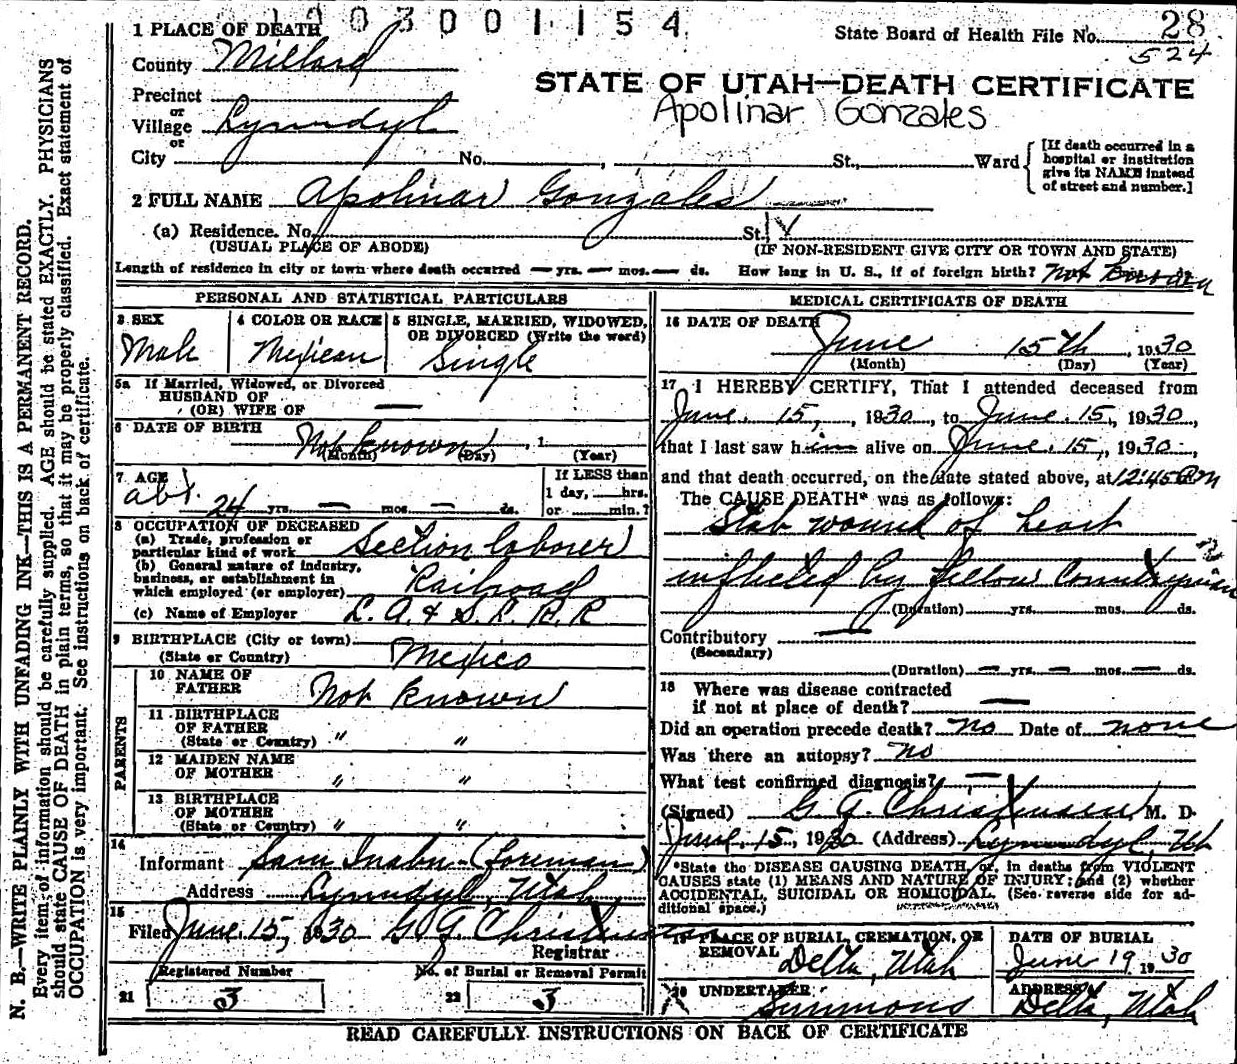 1003001154
State Board of Health File No. 28
524
1 PLACE OF DEATH
County Millard
STATE OF UTAH—DEATH CERTIFICATE
Precinct
or
Village Lynndyl
Apolinar Gonzales
or
City No. , St., Ward
[If death occurred in a hospital or institution give its NAME instead of street and number.]
2 FULL NAME Apolinar Gonzales
(a) Residence. No. St.
(USUAL PLACE OF ABODE) (IF NON-RESIDENT GIVE CITY OR TOWN AND STATE)
Length of residence in city or town where death occurred — yrs. — mos. — ds. How long in U. S., if of foreign birth? Not Known
PERSONAL AND STATISTICAL PARTICULARS
3 SEX Male
4 COLOR OR RACE Mexican
5 SINGLE, MARRIED, WIDOWED, OR DIVORCED (Write the word) Single
5a If Married, Widowed, or Divorced
HUSBAND OF
(OR) WIFE OF —
6 DATE OF BIRTH Not known , 1
(Month) (Day) (Year)
7 AGE abt. 24 yrs. — mos. — ds.
If LESS than
1 day, hrs.
or min.?
8 OCCUPATION OF DECEASED
(a) Trade, profession or particular kind of work Section laborer
(b) General nature of industry, business, or establishment in which employed (or employer) Railroad
(c) Name of Employer L. A. & S. L. R. R
9 BIRTHPLACE (City or town)
(State or Country) Mexico
PARENTS
10 NAME OF FATHER Not known
11 BIRTHPLACE OF FATHER (State or Country) " "
12 MAIDEN NAME OF MOTHER " "
13 BIRTHPLACE OF MOTHER (State or Country) " "
14
Informant Sam (foreman)
Address Lynndyl, Utah
15
Filed June 15, 1930 G. G. Christensen
Registrar
Registered Number No. of Burial or Removal Permit
21 3 22 3
MEDICAL CERTIFICATE OF DEATH
16 DATE OF DEATH
June 15th , 1930
(Month) (Day) (Year)
17 I HEREBY CERTIFY, That I attended deceased from
June 15, , 1930, to June 15, 1930
that I last saw him alive on June 15, 1930,
and that death occurred, on the date stated above, at 12:45 m
The CAUSE DEATH* was as follows:
Stab wound of heart
inflicted by fellow Countryman
(Duration) yrs. mos. ds.
Contributory —
(Secondary)
(Duration) — yrs. — mos. — ds.
18 Where was disease contracted
if not at place of death? —
Did an operation precede death? No Date of none
Was there an autopsy? No
What test confirmed diagnosis? —
(Signed) G. G. Christensen, M. D.
June 15, 1930 (Address) Lynndyl, Ut
*State the DISEASE CAUSING DEATH, or, in deaths from VIOLENT
CAUSES state (1) MEANS AND NATURE OF INJURY; and (2) whether
ACCIDENTAL, SUICIDAL OR HOMICIDAL. (See reverse side for ad-
ditional space.)
19 PLACE OF BURIAL, CREMATION, OR REMOVAL Delta, Utah
DATE OF BURIAL June 19 1930
20 UNDERTAKER Simmons
ADDRESS Delta, Utah
READ CAREFULLY INSTRUCTIONS ON BACK OF CERTIFICATE
N. B.—WRITE PLAINLY WITH UNFADING INK—THIS IS A PERMANENT RECORD.
Every item of information should be carefully supplied. AGE should be stated EXACTLY. PHYSICIANS
should state CAUSE OF DEATH in plain terms, so that it may be properly classified. Exact statement of
OCCUPATION is very important. See instructions on back of certificate.